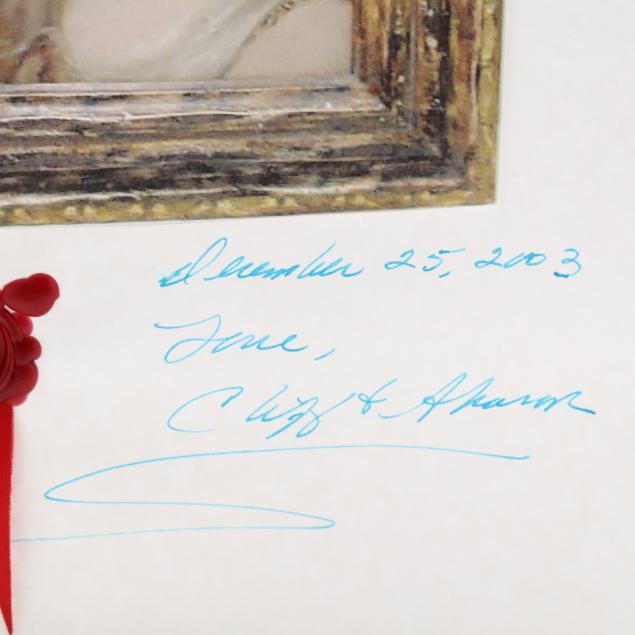 December 25, 2003
Love,
Cliff & Sharon